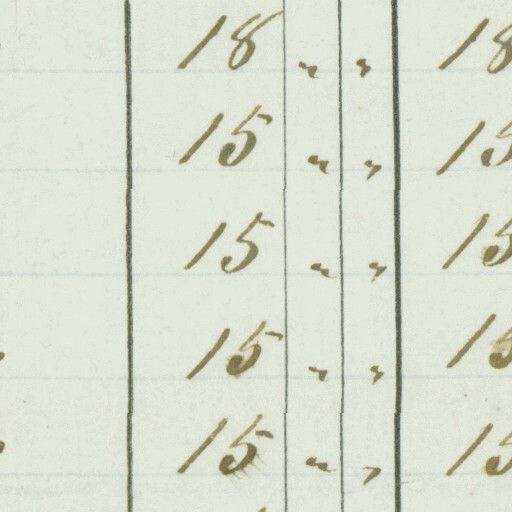 18 " " 18
15 " " 15
15 " " 15
15 " " 15
15 " " 15